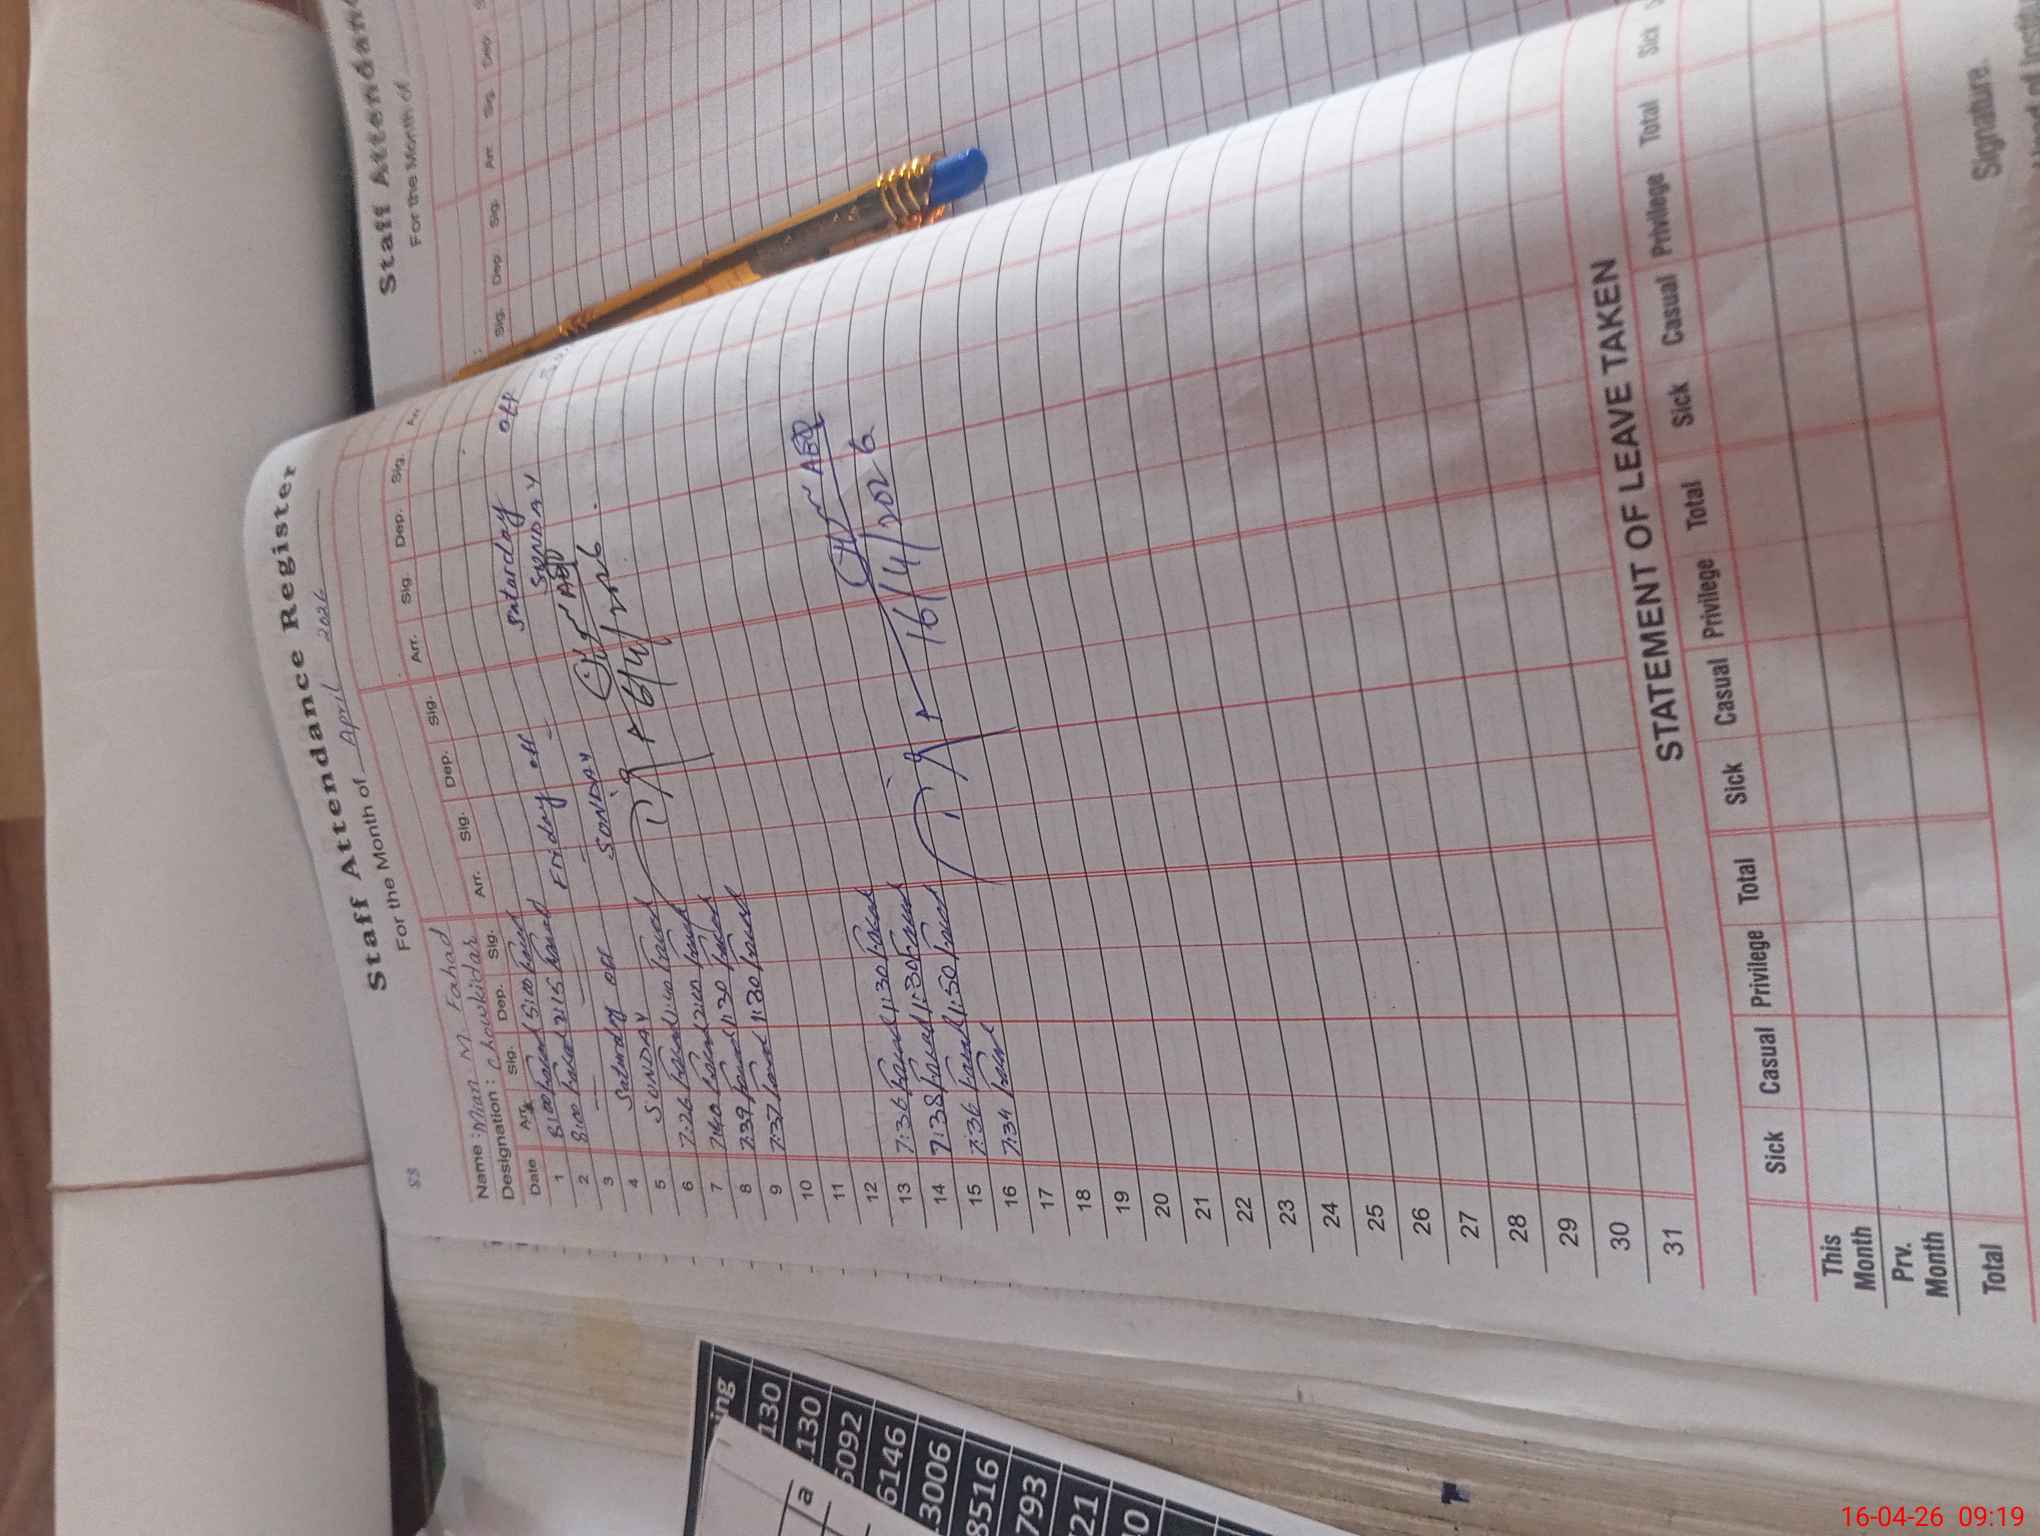 Staff Attendance Register
For the Month of April 2026
53
Name: Mian M. Fahad
Designation: Chowkidar
Date Arr. Sig. Dep. Sig. Arr. Sig. Dep. Sig. Arr. Sig. Dep. Sig. Arr
1 8:00 Fahad Fahad
2 8:00 Fahad 2:15 Fahad Friday off
3
4 Saturday off SUNDAY
5 SUNDAY
6 7:26 Fahad Fahad
7 7:40 Fahad 2:00 Fahad
8 7:39 Fahad 1:30 Fahad
9 7:37 Fahad 1:30 Fahad
10
11
12
13 7:36 Fahad 1:30 Fahad
14 7:38 Fahad 1:30 Fahad
15 7:36 Fahad 1:50 Fahad
16 7:34 Fahad
17
18
19
20
21
22
23
24
25
26
27
28
29
30
31
Saturday off
SUNDAY
6/4/2026
16/4/2026
STATEMENT OF LEAVE TAKEN
Sick Casual Privilege Total Sick Casual Privilege Total Sick Casual Privilege Total Sick
This Month
Prv. Month
Total
Signature.
Staff Attendan
For the Month of
Sig. Dep. Sig. Arr. Sig. Dep.
ing
130
130
6092
6146
3006
8516
793
21
0
a
16-04-26 09:19